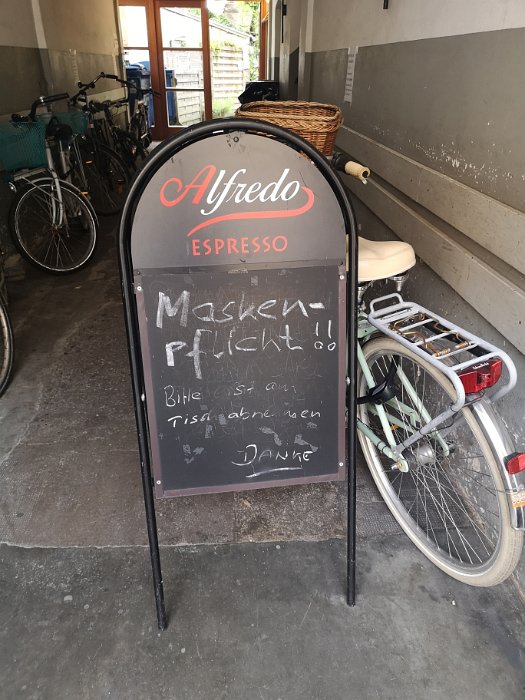 Alfredo
ESPRESSO
Masken-
pflicht!!
Bitte ist am
Tisch abnehmen
DANKE